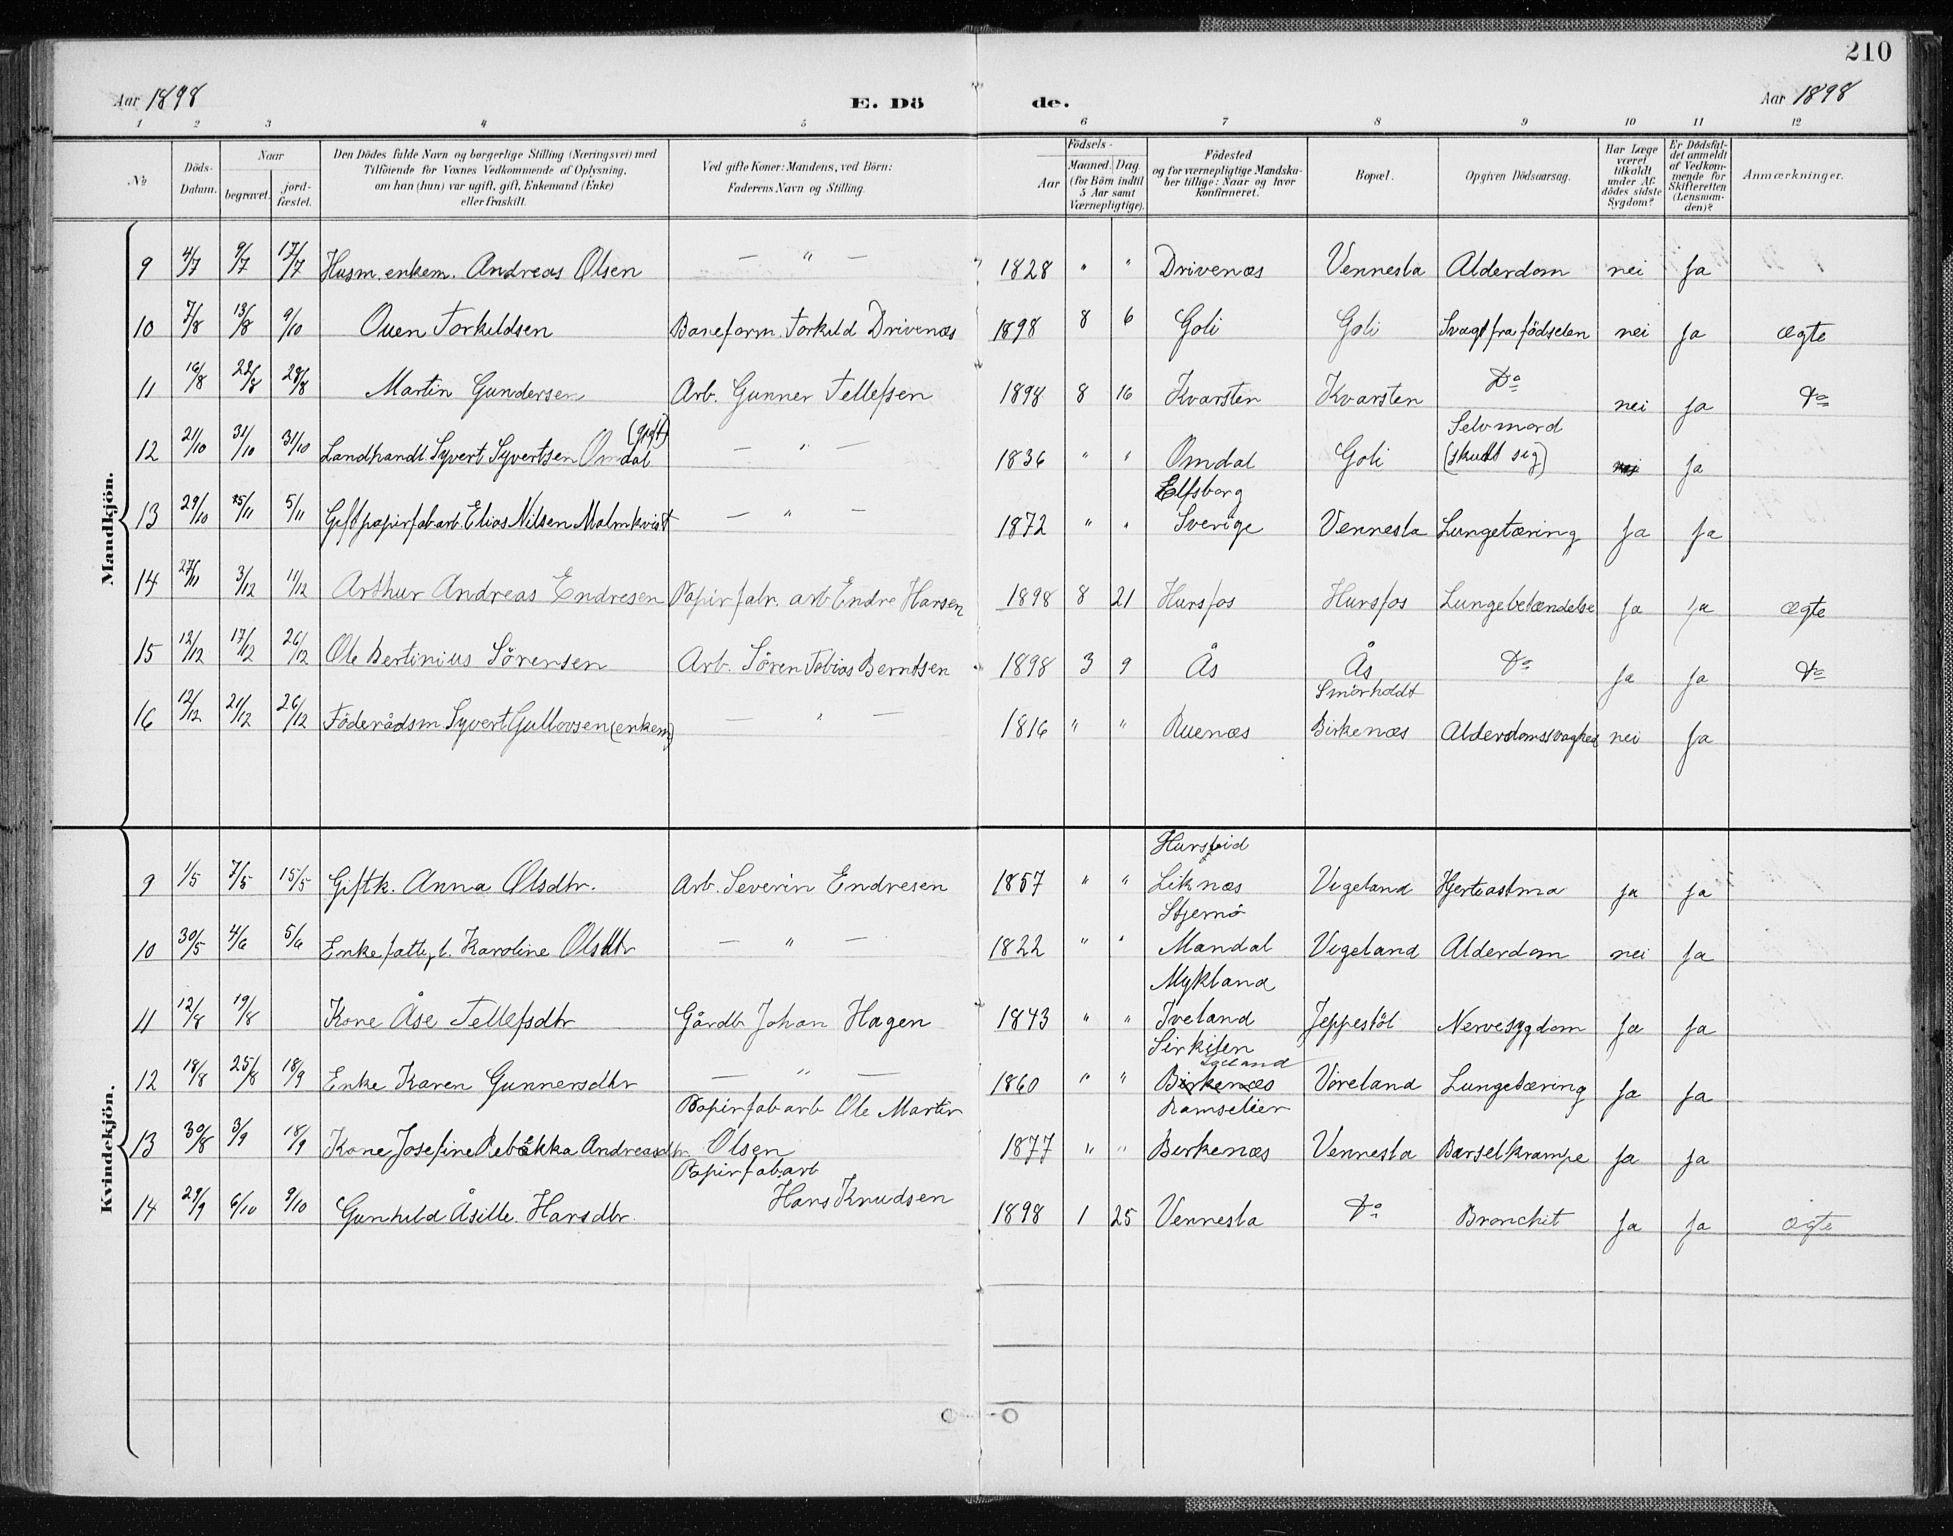 210
Aar 1898 E. Dö de. Aar 1898
1 2 3 4 5 6 7 8 9 10 11 12
No. Döds-Datum. Naar begravet. jord-fæstet. Den Dödes fulde Navn og borgerlige Stilling (Næringsvei) med Tilföiende for Voxnes Vedkommende af Oplysning, om han (hun) var ugift, gift, Enkemand (Enke) eller fraskilt. Ved gifte Koner: Mandens, ved Börn: Faderens Navn og Stilling. Födsels- Aar Maaned. Dag (for Börn indtil 5 Aar samt Værnepligtige). Födested og for værnepligtige Mandskaber tillige: Naar og hvor konfirmeret. Bopæl. Opgiven Dödsaarsag. Har Læge været tilkaldt under Afdödes sidste Sygdom? Er Dödsfaldet anmeldt af Vedkommende for Skifteretten (Lensmanden)? Anmærkninger.
Mandkjön.
9 4/7 9/7 17/7 Husm. enkem. Andreas Olsen — " — 1828 " " Drivenæs Vennesla Alderdom nei Ja
10 7/8 13/8 9/10 Ouen Torkildsen Baneform. Torkild Drivenæs 1898 8 6 Goli Goli Svagt fra födselen nei Ja ægte
11 16/8 22/8 28/8 Martin Gundersen Arb. Gunner Tellefsen 1898 8 16 Kvarsten Kvarsten Do nei Ja Do
12 21/10 31/10 31/10 Landhandl. Syvert Syvertsen Omdal (gift) — " — 1836 " " Omdal Goli Selvmord (skudt sig) nei Ja
13 29/10 5/11 5/11 Gift papirfabarb. Elias Nilsen Malmkvist — " — 1872 " " Elfsborg Sverige Vennesla Lungetæring Ja Ja
14 27/11 3/12 11/12 Arthur Andreas Endresen Papirfabr. arb Endre Hansen 1898 8 21 Hunsfos Hunsfos Lungebetændelse Ja Ja ægte
15 12/12 17/12 26/12 Ole Bertinius Sörensen Arb. Sören Tobias Berntsen 1898 3 9 Ås Ås Do Ja Ja Do
16 12/12 21/12 26/12 Föderådsm Syvert Gullovsen (enkem) — " — 1816 " " Ruenæs Smörholdt Birkenæs Alderdomssvaghed nei Ja
Kvindekjön.
9 1/5 7/5 15/5 Gift k. Anna Olsdtr. Arb. Severin Endresen 1857 " " Liknæs Vigeland Hjerteastma Ja Ja
10 30/5 4/6 5/6 Enke fattigl. Karoline Olsdtr — " — 1822 " " Stjernö Mandal Vigeland Alderdom nei Ja
11 12/8 19/8 Kone Åse Tellefsdtr Gårdb. Johan Hagen 1843 " " Mykland Iveland Jeppestöl Nervesygdom Ja Ja
12 18/8 25/8 18/9 Enke Karen Gunnersdtr — " — 1860 " " Birkenæs Vöreland Lungetæring Ja Ja
13 30/8 3/9 18/9 Kone Josefine Rebekka Andreasdtr Papirfabarb Ole Martin Olsen 1877 " " Ramselier Birkenæs Vennesla Barselkrampe Ja Ja
14 29/9 6/10 9/10 Gunhild Åsille Hansdtr. Papirfabarb Hans Knudsen 1898 1 25 Vennesla Do Bronchit Ja Ja ægte